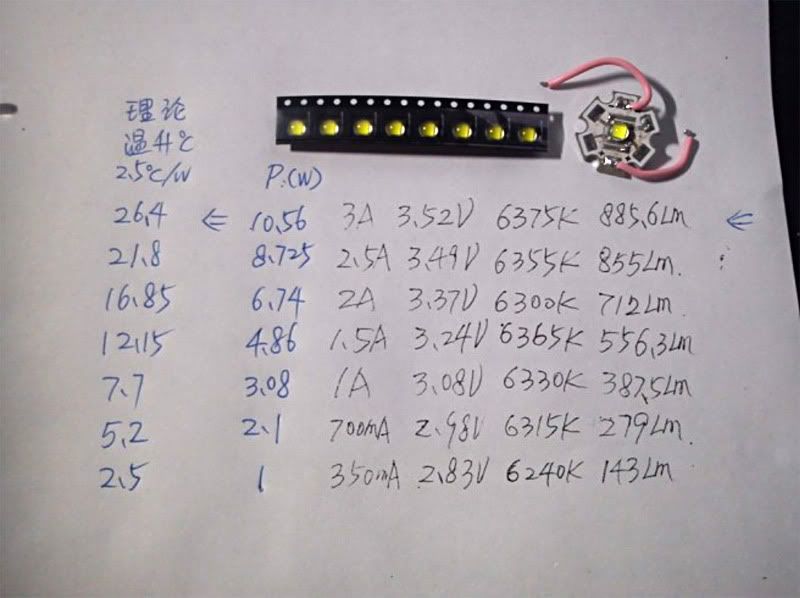 理论
温升℃
2.5℃/W P.(W)
26.4 ⇐ 10.56 3A 3.52V 6375K 885.6Lm ⇐
21.8 8.725 2.5A 3.49V 6355K 855Lm.
16.85 6.74 2A 3.37V 6300K 712Lm
12.15 4.86 1.5A 3.24V 6365K 556.3Lm
7.7 3.08 1A 3.08V 6330K 387.5Lm
5.2 2.1 700mA 2.98V 6315K 279Lm.
2.5 1 350mA 2.83V 6240K 143Lm